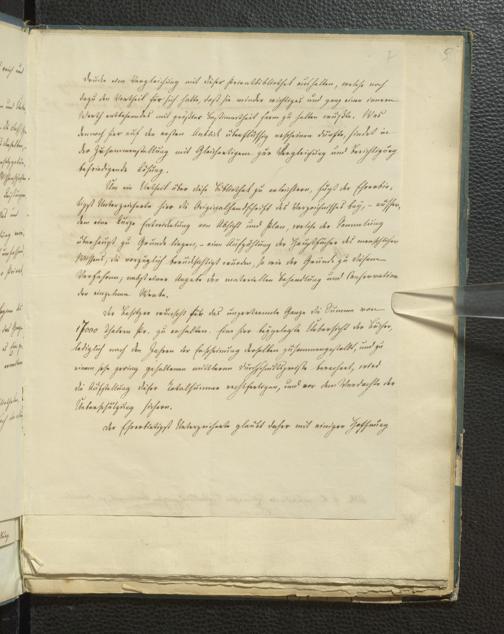 Drucke eine Vergleichung mit dieser Privatbibliothek aushalten, welche noch
dazu den Vortheil für sich hatte, daß sie minder wichtiges und ganz eines inneren
Werths entbehrendes mit größter Bestimmtheit fern zu halten wußte. Was
demnach hier auf den ersten Anblick überflüssig erscheinen dürfte, findet in
der Zusammenstellung mit Gleichartigem zur Vergleichung und Berichtigung
befriedigende Lösung.
Um ein Urtheil über diese Bibliothek zu erleichtern, fügt der Ehrerbie-
tigst Unterzeichnete hier die Originalhandschrift des Verzeichnisses bey, – außer-
dem eine kurze Entwickelung von Absicht und Plan, welche der Sammlung
überhaupt zu Grunde liegen, – eine Aufzählung der Hauptfächer des menschlichen
Wissens, die vorzüglich berücksichtigt wurden, so wie der Gründe zu diesem
Verfahren, nebst einer Angabe der materiellen Behandlung und Conservation
der einzelnen Werke.
Der Besitzer wünscht für das ungetrennte Ganze die Summe von
17000 Thalern Pr. zu erhalten. Eine hier beygelegte Uebersicht der Bücher,
lediglich nach den Jahren der Erscheinung derselben zusammengestellt, und zu
einem sehr gering gehaltenen mittleren Durchschnittspreise berechnet, wird
die Aufstellung dieser Totalsumme rechtfertigen, und vor dem Verdachte der
Ueberschätzung sichern.
Der Ehrerbietigst Unterzeichnete glaubt daher mit einiger Hoffnung